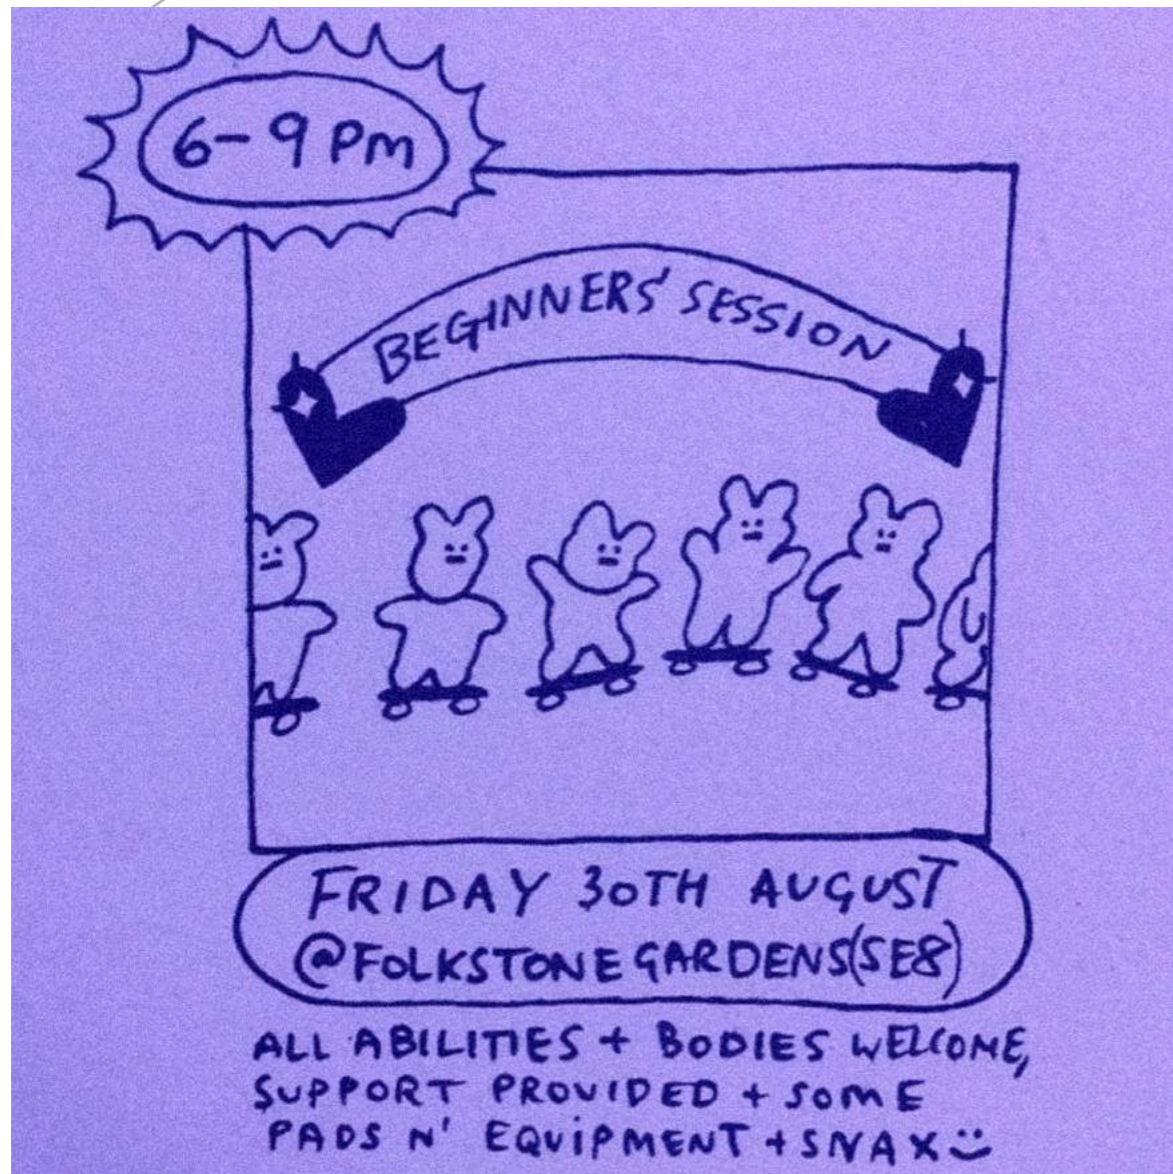 6-9 Pm
BEGINNERS' SESSION
FRIDAY 30TH AUGUST
@FOLKSTONE GARDENS(SE8)
ALL ABILITIES + BODIES WELCOME,
SUPPORT PROVIDED + SOME
PADS N' EQUIPMENT + SNAX :)